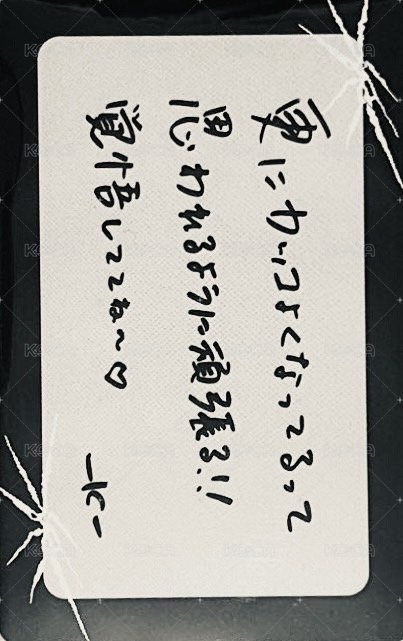 更にかっこよくなってるって
思われるように頑張る!!
覚悟しててね〜♡
-K-